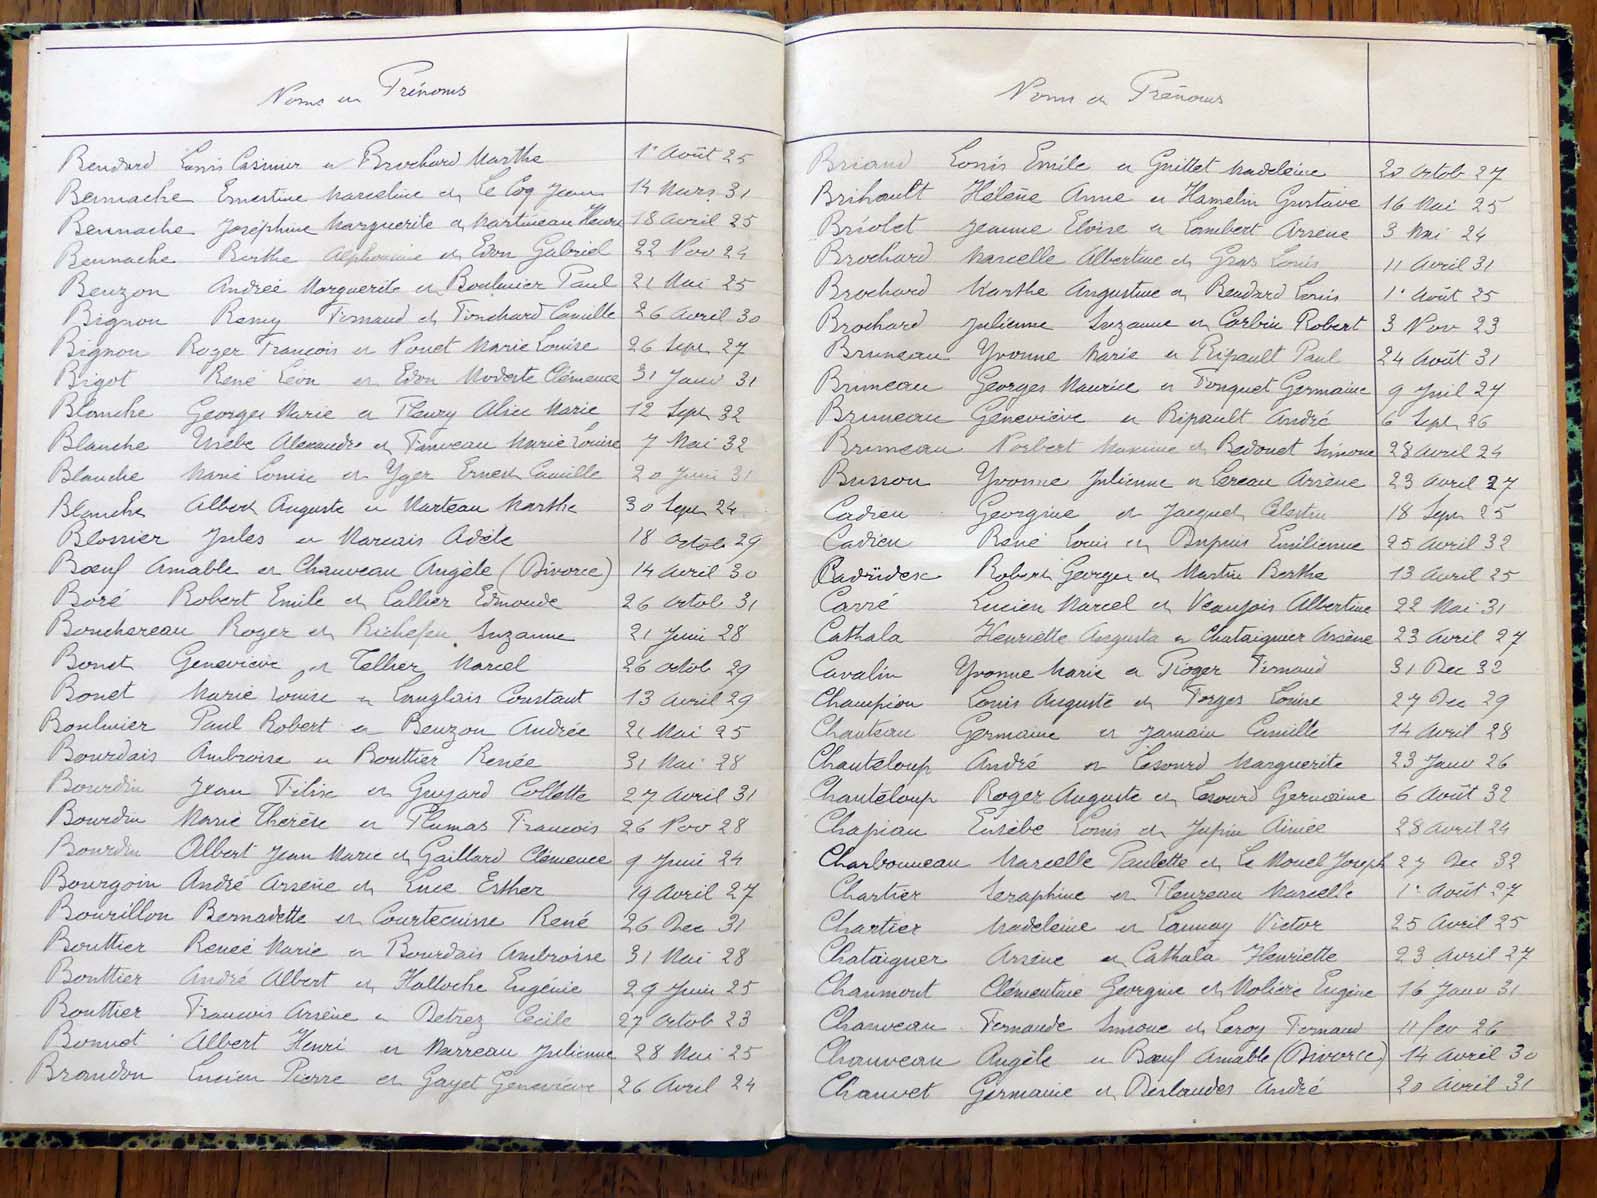 Noms et Prénoms
Bendard Louis Casimir et Brochard Marthe 1er Août 25
Bennache Ernestine Marceline et Le Coq Jean 14 Mars 31
Bennache Joséphine Marguerite et Martineau Henri 18 avril 25
Bennache Berthe Alphonsine et Edon Gabriel 22 Nov 24
Benzon Andrée Marguerite et Boulmier Paul 21 Mai 25
Bignon Remy Fernand et Tronchard Camille 26 Avril 30
Bignon Roger François et Nouet Marie Louise 26 Sept 27
Bigot René Léon et Edon Modeste Clémence 31 Janv 31
Blanche Georges Marie et Fleury Alice Marie 12 Sept 32
Blanche Alexandre et Fauveau Marie Louise 7 Mai 32
Blanche Marie Louise et Yger Ernest Camille 20 Juin 31
Blanche Albert Auguste et Marteau Marthe 30 Sept 24
Blossier Jules et Marçais Adèle 18 Octob 29
Bœuf Amable et Chauveau Angèle (Divorce) 14 Avril 30
Boré Robert Emile et Lallier Edmonde 26 Octob 31
Bouchereau Roger et Richefeu Suzanne 21 Juin 28
Bouet Geneviève et Tellier Marcel 26 Octob 29
Bouet Marie Louise et Langlais Constant 13 Avril 29
Boulmier Paul Robert et Benzon Andrée 21 Mai 25
Bourdais Ambroise et Bouttier Renée 31 Mai 28
Bourdin Jean Félix et Guyard Collette 27 Avril 31
Bourdin Marie Thérèse et Plumas François 26 Nov 28
Bourdin Albert Jean Marie et Gaillard Clémence 9 Juin 24
Bourgoin André Arsène et Luce Esther 19 Avril 27
Bourillon Bernadette et Courtecuisse René 26 Dec 31
Bouttier Renée Marie et Bourdais Ambroise 31 Mai 28
Bouttier André Albert et Halloche Eugénie 29 Juin 25
Bouttier François Arsène et Detrez Cécile 27 Octob 23
Bouvet Albert Henri et Marreau Julienne 28 Mai 25
Brandon Lucien Pierre et Gayet Geneviève 26 Avril 24
Noms et Prénoms
Briand Louis Emile et Guittet Madeleine 20 Octob 27
Brihault Hélène Anne et Hamelin Gustave 16 Mai 25
Briolet Jeanne Eloïse et Lambert Arsène 3 Mai 24
Brochard Marcelle Albertine et Gras Louis 11 Avril 31
Brochard Marthe Augustine et Bendard Louis 1er Août 25
Brochard Julienne Suzanne et Corbin Robert 3 Nov 23
Bruneau Yvonne Marie et Ripault Paul 24 Août 31
Bruneau Georges Maurice et Fouquet Germaine 9 Juil 27
Bruneau Geneviève et Ripault André 6 Sept 26
Bruneau Norbert Maxime et Bedouet Simone 28 Avril 24
Busson Yvonne Julienne et Lereau Arsène 23 Avril 27
Cadieu Georgine et Jacquet Célestin 18 Sept 25
Cadieu René Louis et Dupuis Emilienne 25 Avril 32
Robert Georges et Martin Berthe 13 Avril 25
Carré Lucien Marcel et Veaujois Albertine 22 Mai 31
Cathala Henriette Augusta et Chataignier Arsène 23 Avril 27
Cavalin Yvonne Marie et Roger Fernand 31 Dec 32
Champion Louis Auguste et Forges Louise 27 Dec 29
Chanteau Germaine et Jamain Camille 14 Avril 28
Chanteloup André et Lesourd Marguerite 23 Janv 26
Chanteloup Roger Auguste et Lesourd Germaine 6 Août 32
Chapiau Eusèbe Louis et Jupin Aimée 28 Avril 24
Charbonneau Marcelle Paulette et Le Mouel Joseph 27 Dec 32
Chartier Seraphine et Fleureau Marcelle 1er Août 27
Chartier Madeleine et Launay Victor 25 Avril 25
Chataigner Arsène et Cathala Henriette 23 Avril 27
Chaumont Clémentine Georgine et Molière Eugène 16 Janv 31
Chauveau Fernande Simone et Leroy Fernand 11 fev 26
Chauveau Angèle et Bœuf Amable (Divorce) 14 Avril 30
Chauvet Germaine et Deslandes André 20 Avril 31